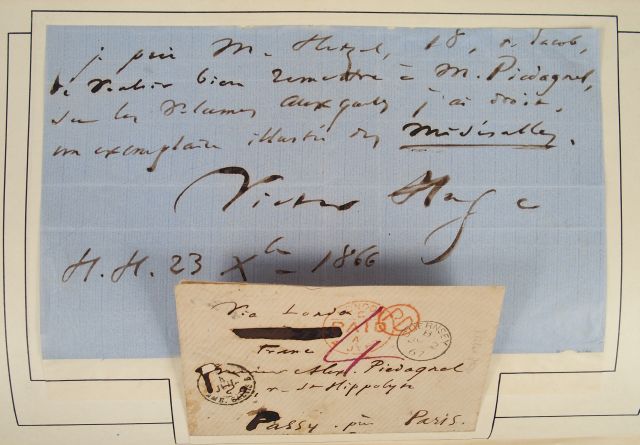 je prie M. Hetzel, 18, r. Jacob,
de vouloir bien remettre à M. Piedagnel,
sur les volumes auxquels j'ai droit,
un exemplaire illustré des Misérables.
Victor Hugo
H. H. 23 Xbre 1866
Via London
PAID
PD
GUERNSEY
67
France
Monsieur Alex. Piedagnel
r. St Hippolyte
Passy. près Paris.